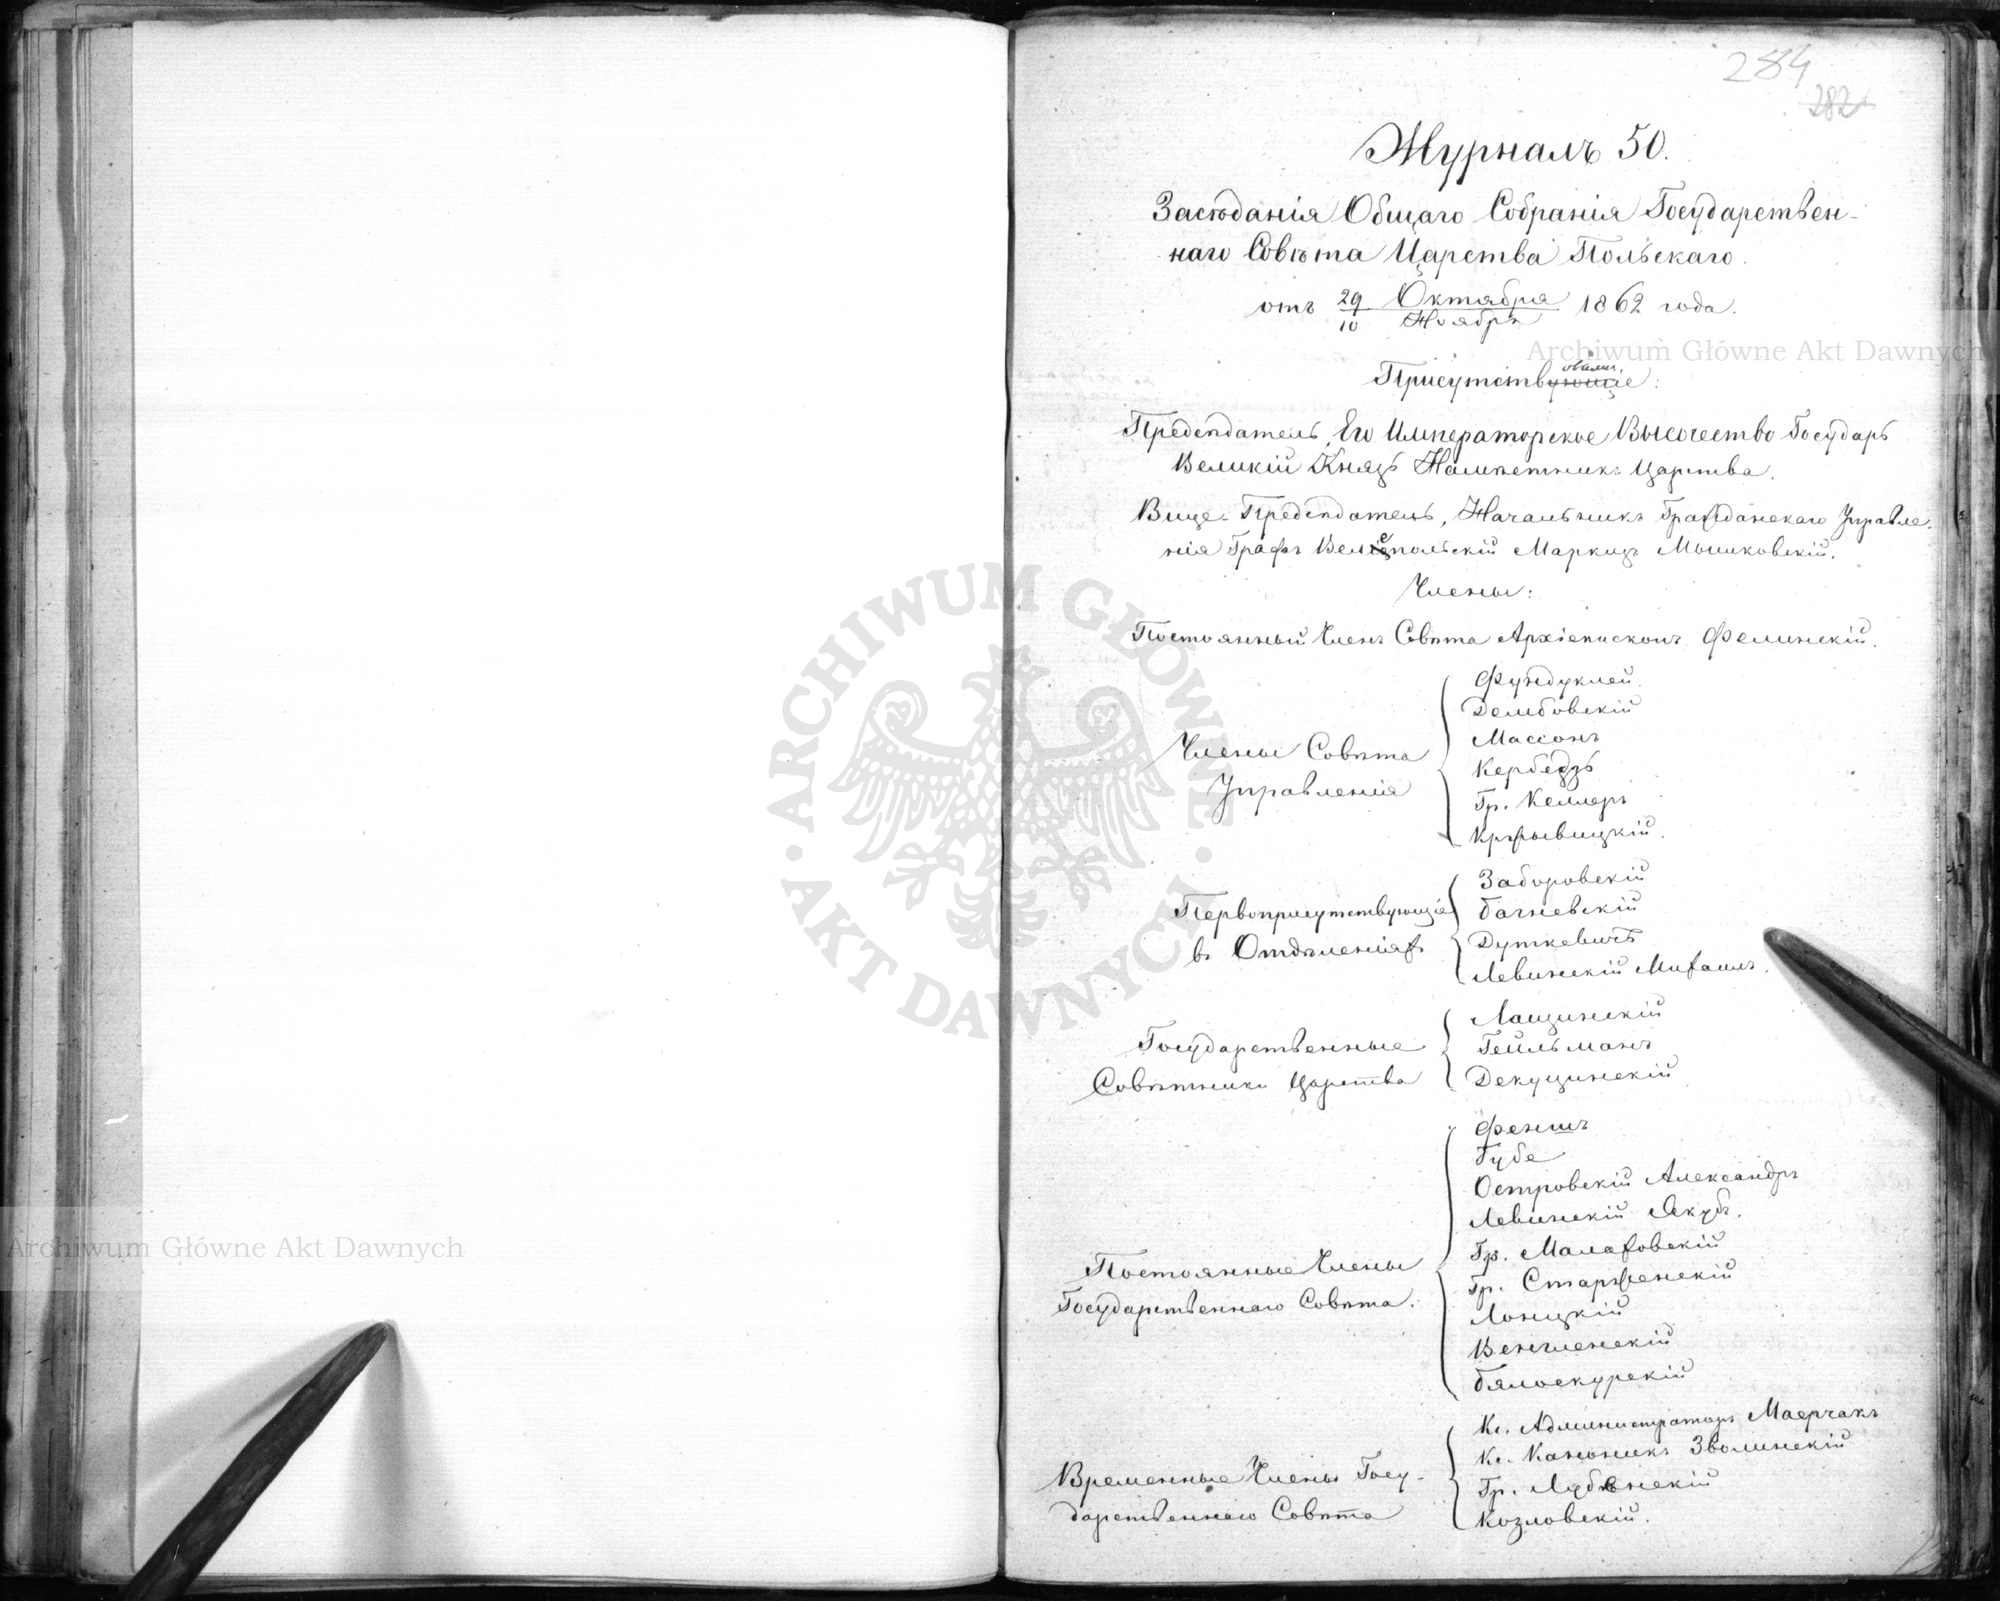 284
282
Журналъ 50.
Засѣданія Общаго Собранія Государствен-
наго Совѣта Царства Польскаго.
отъ 29/10 Октября/Ноября 1862 года.
овали,
Присутствующіе:
Предсѣдатель, Его Императорское Высочество Государь
Великій Князь Намѣстникъ Царства.
Вице-Предсѣдатель, Начальникъ Гражданскаго Управле-
нія Графъ Велепольскій Маркизъ Мышковскій.
Члены:
Постоянный Членъ Совѣта Архіепископъ Фелинскій.
Члены Совѣта
Управленія
Фундуклей.
Дембовскій
Массонъ
Кербедзъ
Гр. Келлеръ
Кржывицкій.
Первоприсутствующіе
въ Отдѣленіяхъ
Заборовскій
Багневскій
Дуткевичъ
Левинскій Михаилъ.
Государственные
Совѣтники Царства
Лащинскій
Гейльманъ
Декуцинскій
Постоянные Члены
Государственнаго Совѣта.
Феншъ
Губе
Островскій Александръ
Левинскій Якубъ.
Гр. Малаховскій
Гр. Старженскій
Лоницкій
Венгленскій
Бялоскурскій
Временные Члены Госу-
дарственнаго Совѣта
Кс. Администраторъ Маерчакъ
Кс. Каноникъ Зволинскій
Гр. Лубенскій
Козловскій.
Archiwum Główne Akt Dawnych
Archiwum Główne Akt Dawnych
ARCHIWUM GŁÓWNE · AKT DAWNYCH ·